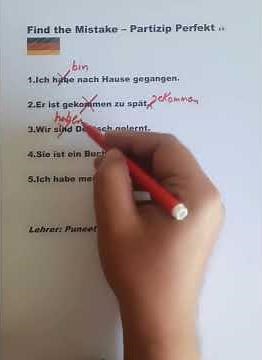 Find the Mistake – Partizip Perfekt
bin
1.Ich habe nach Hause gegangen.
2.Er ist gekommen zu spät, gekommen
haben
3.Wir sind gelernt.
4.Sie ist ein
5.Ich habe
Lehrer: Puneet